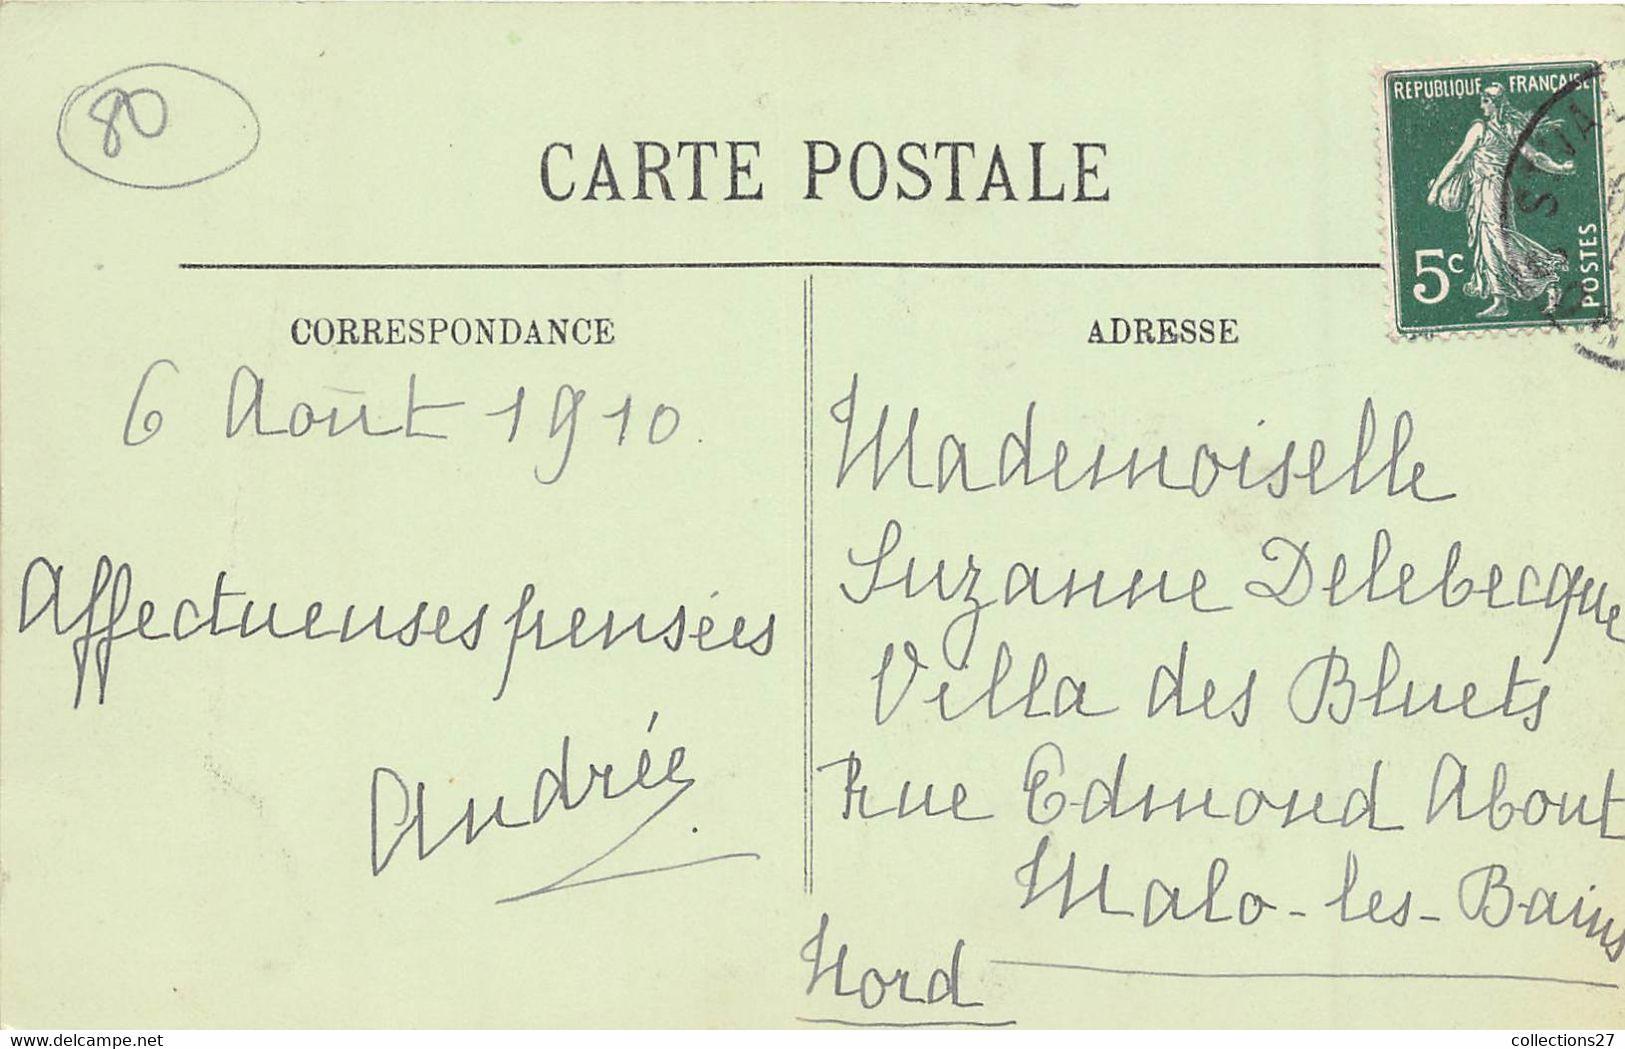 80
CARTE POSTALE
REPUBLIQUE FRANÇAISE
5c
POSTES
CORRESPONDANCE
6 Août 1910.
Affectueuses pensées
Andrée
ADRESSE
Mademoiselle
Suzanne Delebecque
Villa des Bluets
Rue Edmond About
Malo-les-Bains
Nord
www.delcampe.net
collections27